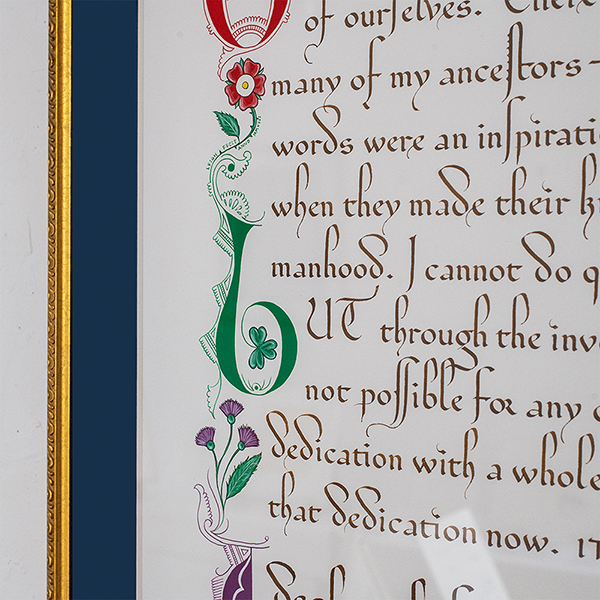 of ourselves. There
many of my ancestors -
words were an inspirati
when they made their k
manhood. I cannot do q
bUT through the inv
not possible for any
dedication with a whole
that dedication now. IT